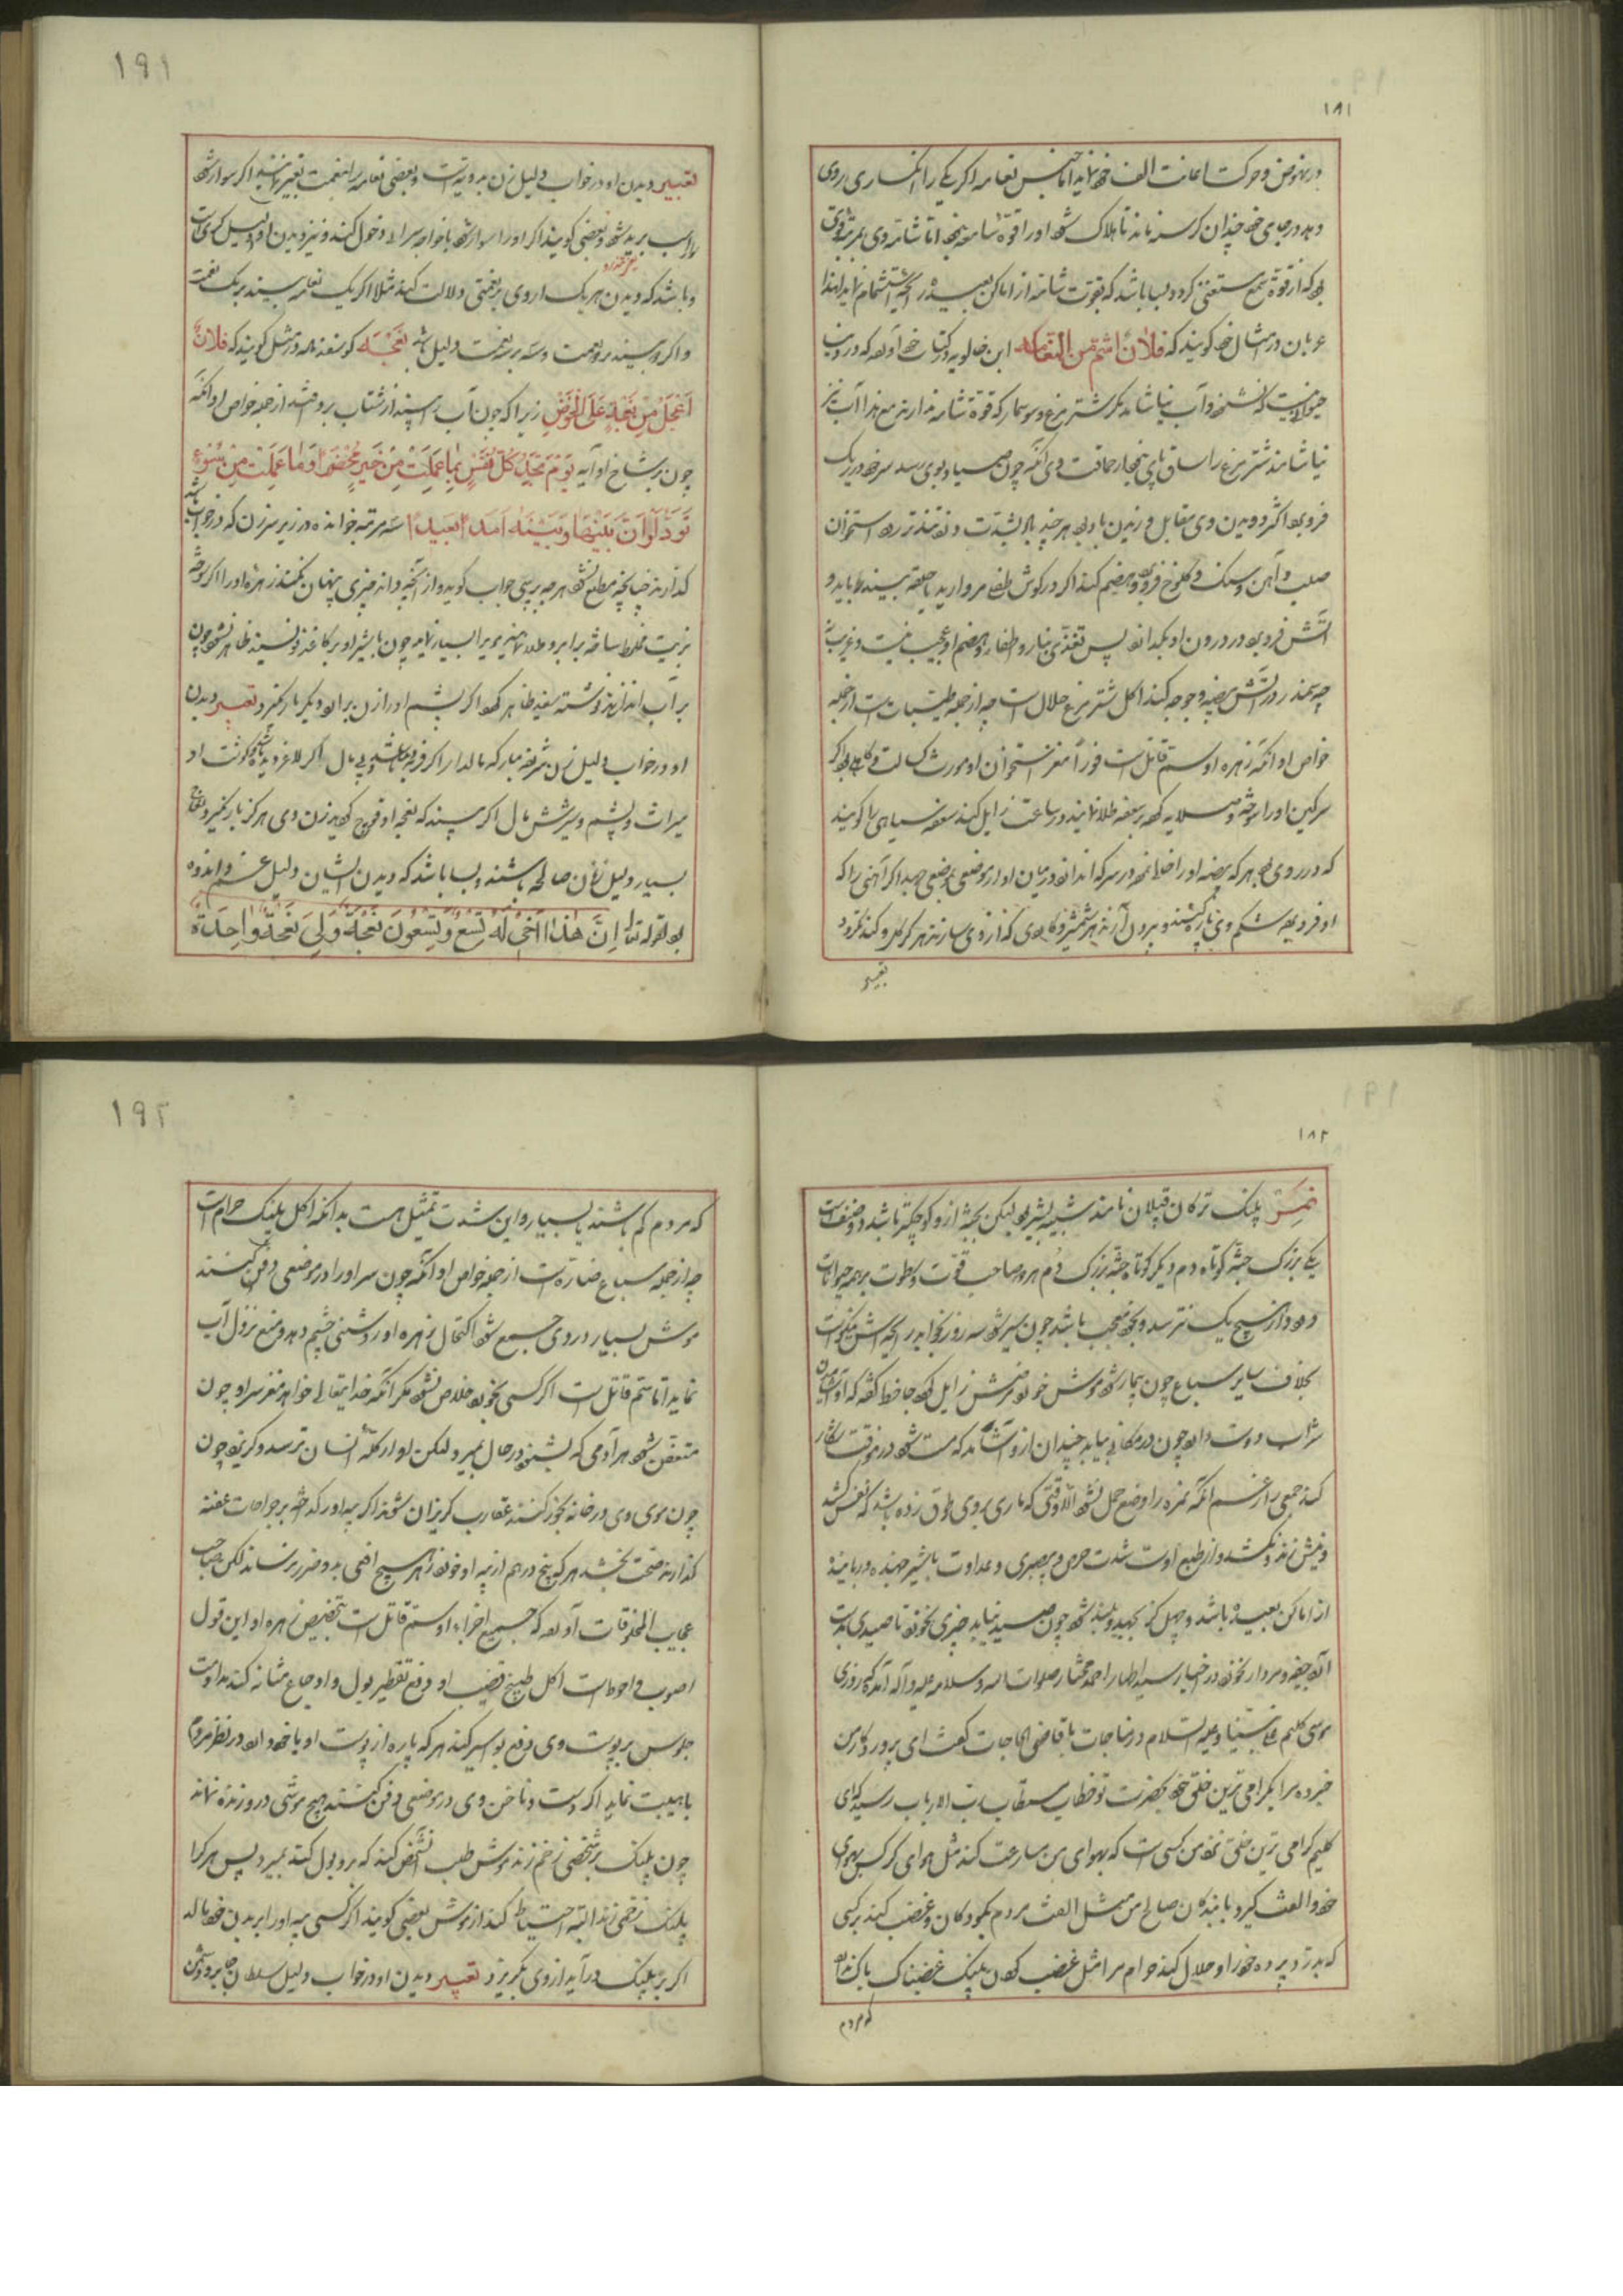 ۱۸۱
در نهوض و حرکت اعانت الف خود نماید اما جنس نعامه اگر یکی را انکساری روی
دهد در جای خود چندان گرسنه ماند تا هلاک شود او را قوة سامعه نبود اما شامه وی بمرتبه قوی
بود که از قوة سمع مستغنی گردد و بسا باشد که بقوت شامه از اماکن بعیده رایحه استشمام نماید لهذا
عربان در امثال خود گویند که فلان اشم من النعامه ابن خالویه در کتاب خود آورده که در دنیا
حیوانی نیست که نشنود و آب نیاشامد مگر شترمرغ و سوسمار که قوة شامه ندارند مع هذا آب نیز
نیاشامند شترمرغ را ساق پای حماقت وی آنکه چون صیاد بوی رسد سر خود در ریک
فرو برد اکثر دویدن وی مقابل وزیدن باد بود هر چند باد بشدت وزد تندتر رود استخوان
صلب و آهن و سنگ و کلوخ فرو برد و هضم کند اگر در گوش طفلی مروارید یا حلقه بیند برباید و
آتش فرو برد در درون او بگدازد پس تغذی بنار و اطفاء و هضم او عجیب نیست و غریب
چه سمندر در آتش بیضه و جوجه کند اکل شترمرغ حلال است چه از جمله طیبات است از جمله
خواص او آنکه زهره او سم قاتل است فورا مغز استخوان او مورث سل است
سرکین او را سوخته و سلایه کرده بر سعفه طلا نمایند در ساعت زایل کند سعفه سیاهی را گویند
که در روی بود هر که بیضه او را در سرکه اندازد در میان او از موضعی بموضعی جهد اگر آهنی را که
او فرو برد شکم وی پاره کنند و بیرون آرند هر شمشیر و کاردی که از وی سازند هرگز کند نگردد
تعبیر
۱۹۱
تعبیر دیدن او در خواب دلیل زن بدویه است و بعضی نعامه را بنعمت تعبیر نمایند اگر سوار شود
بر اسب برید شود و بعضی گویند اگر او را سوار شود با خواجه سرای دخول کند و نیز دیدن او دلیل کری است
و باشد که دیدن هر یک از وی بر نعمتی دلالت کند مثلا اگر یک نعامه بیند بر یک نعمت
و اگر دو بیند بر دو نعمت و سه بر سه نعمت دلیل باشد نعجه گوسفند ماده در مثل گویند که فلان
اعجل من نعجة علی الحوض زیرا که چون آب را بیند از شتاب بر او افتد از جمله خواص او آنکه
چون بر شاخ او آیه یوم تجد کل نفس بما عملت من خیر محضرا و ما عملت من سوء
تود لو ان بینها و بینه امدا بعیدا سه مرتبه خوانده در زیر سر زن که در خواب باشد
گذارند چنانچه مطلع نشود هر چه پرسی جواب گوید و از آنچه داند چیزی پنهان نکند زهره او را اگر سوخته
بزیت مخلوط ساخته بر ابرو طلا نمایند موی را بسیار نماید چون با شیر او بر کاغذ نویسند ظاهر نشود چون
بر آب اندازند نوشته سفید ظاهر گردد اگر پشم او را زن بردارد دیگر بار نگیرد تعبیر دیدن
او در خواب دلیل زن شریفه مبارکه مالدار اگر فربه باشد و بی مال اگر لاغر دیده باشد گوشت او
میراث و پشم و شیرش مال اگر بیند که نعجه او قوچ گردید زن وی هرگز بار نگیرد نعاج
بسیار دلیل زنان صالحه باشند و بسا باشد که دیدن ایشان دلیل غم و اندوه
بود لقوله تعالی ان هذا اخی له تسع و تسعون نعجة و لی نعجة واحدة
۱۸۲
نمر پلنک ترکان قپلان نامند شبیه بشیر بود لیکن بجثه از او کوچکتر باشد دو صنف است
یکی بزرک جثه کوتاه دم دیگر کوتاه جثه بزرک دم هر دو صاحب قوت و سطوت بر همه حیوانات
و از هیچ یک نترسد و بخود معجب باشد چون سیر شود سه روز بخوابد رایحه اش نیکوست
بخلاف سایر سباع چون بیمار شود موش خورد مرضش زایل گردد جاحظ گفته که او آشامیدن
شراب دوست دارد چون در مکانی بیابد چندان از او آشامد که مست شود در آن وقت شکار
کنند جمعی را زعم آنکه نمره را وضع حمل نشود الا وقتی که ماری بر وی طوق زده باشد که نفس کشد
و نیش زند و نکشد و از طبع اوست شدت حرص و بیصبری و عداوت با شیر جهنده و رباینده
از اماکن بعیده باشد و چهل گز بجهد و بلند شود چون صید نیابد چیزی نخورد تا صیدی بدست
آرد جیفه و مردار نخورد در اخبار سید اطهار احمد مختار صلوات الله و سلامه علیه و آله آمده که روزی
موسی کلیم علی نبینا و علیه السلام در مناجات با قاضی الحاجات گفت ای پروردگار من
خبر ده مرا بگرامی ترین خلق خود بحضرت تو خطاب مستطاب رب الارباب رسید که ای
کلیم گرامی ترین خلق نزد من کسی است که بهوای من مسارعت کند مثل هوای کرکس بهوای
خود و الفت گیرد با بندگان صالح من مثل الفت مردم بکودکان و غضب کند بر کسی
که بدرد پرده خود را و حلال کند حرام مرا مثل غضب کردن پلنک غضبناک باک ندارد
که مردم
۱۹۲
که مردم کم باشند یا بسیار و این شدت تمثیل است بدانکه اکل پلنک حرام است
چه از جمله سباع ضاره است از جمله خواص او آنکه چون سر او را در موضعی دفن کنند
موش بسیار در وی جمع شود اکتحال زهره او روشنی چشم دهد و منع نزول آب
نماید اما سم قاتل است اگر کسی بخورد خلاص نشود مگر آنکه خدایتعالی خواهد مغز سر او چون
متعفن شود هر آدمی که بشنود در حال بمیرد ولیکن او از کله انسان ترسد و گریزد چون
چون موی وی در خانه بخور کنند عقارب گریزان شوند اگر پیه او را گداخته بر جراحات عفنه
گذارند صحت بخشد هر که پنج درهم از پیه او خورد زهر هیچ افعی بدو ضرر نرساند لکن صاحب
عجایب المخلوقات آورده که جمیع اجزاء او سم قاتل است بتخصیص زهره او این قول
اصوب و احوط است اکل طبیخ قضیب او دفع تقطیر بول و اوجاع مثانه کند مداومت
جلوس بر پوست وی دفع بواسیر کند هر که پاره از پوست او با خود دارد در نظر مردم
با هیبت نماید اگر دست و ناخن وی در موضعی دفن کنند هیچ موشی در او زنده نماند
چون پلنک بر شخصی زخم زند موش طلب آن شخص کند که بر او بول کند بمیرد پس هر کرا
پلنک زخمی زند البته احتیاط کند از موش بعضی گویند اگر کسی پیه او را بر بدن خود مالد
اگر بر پلنک درآید از وی بگریزد تعبیر دیدن او در خواب دلیل سلطان جابر و دشمن